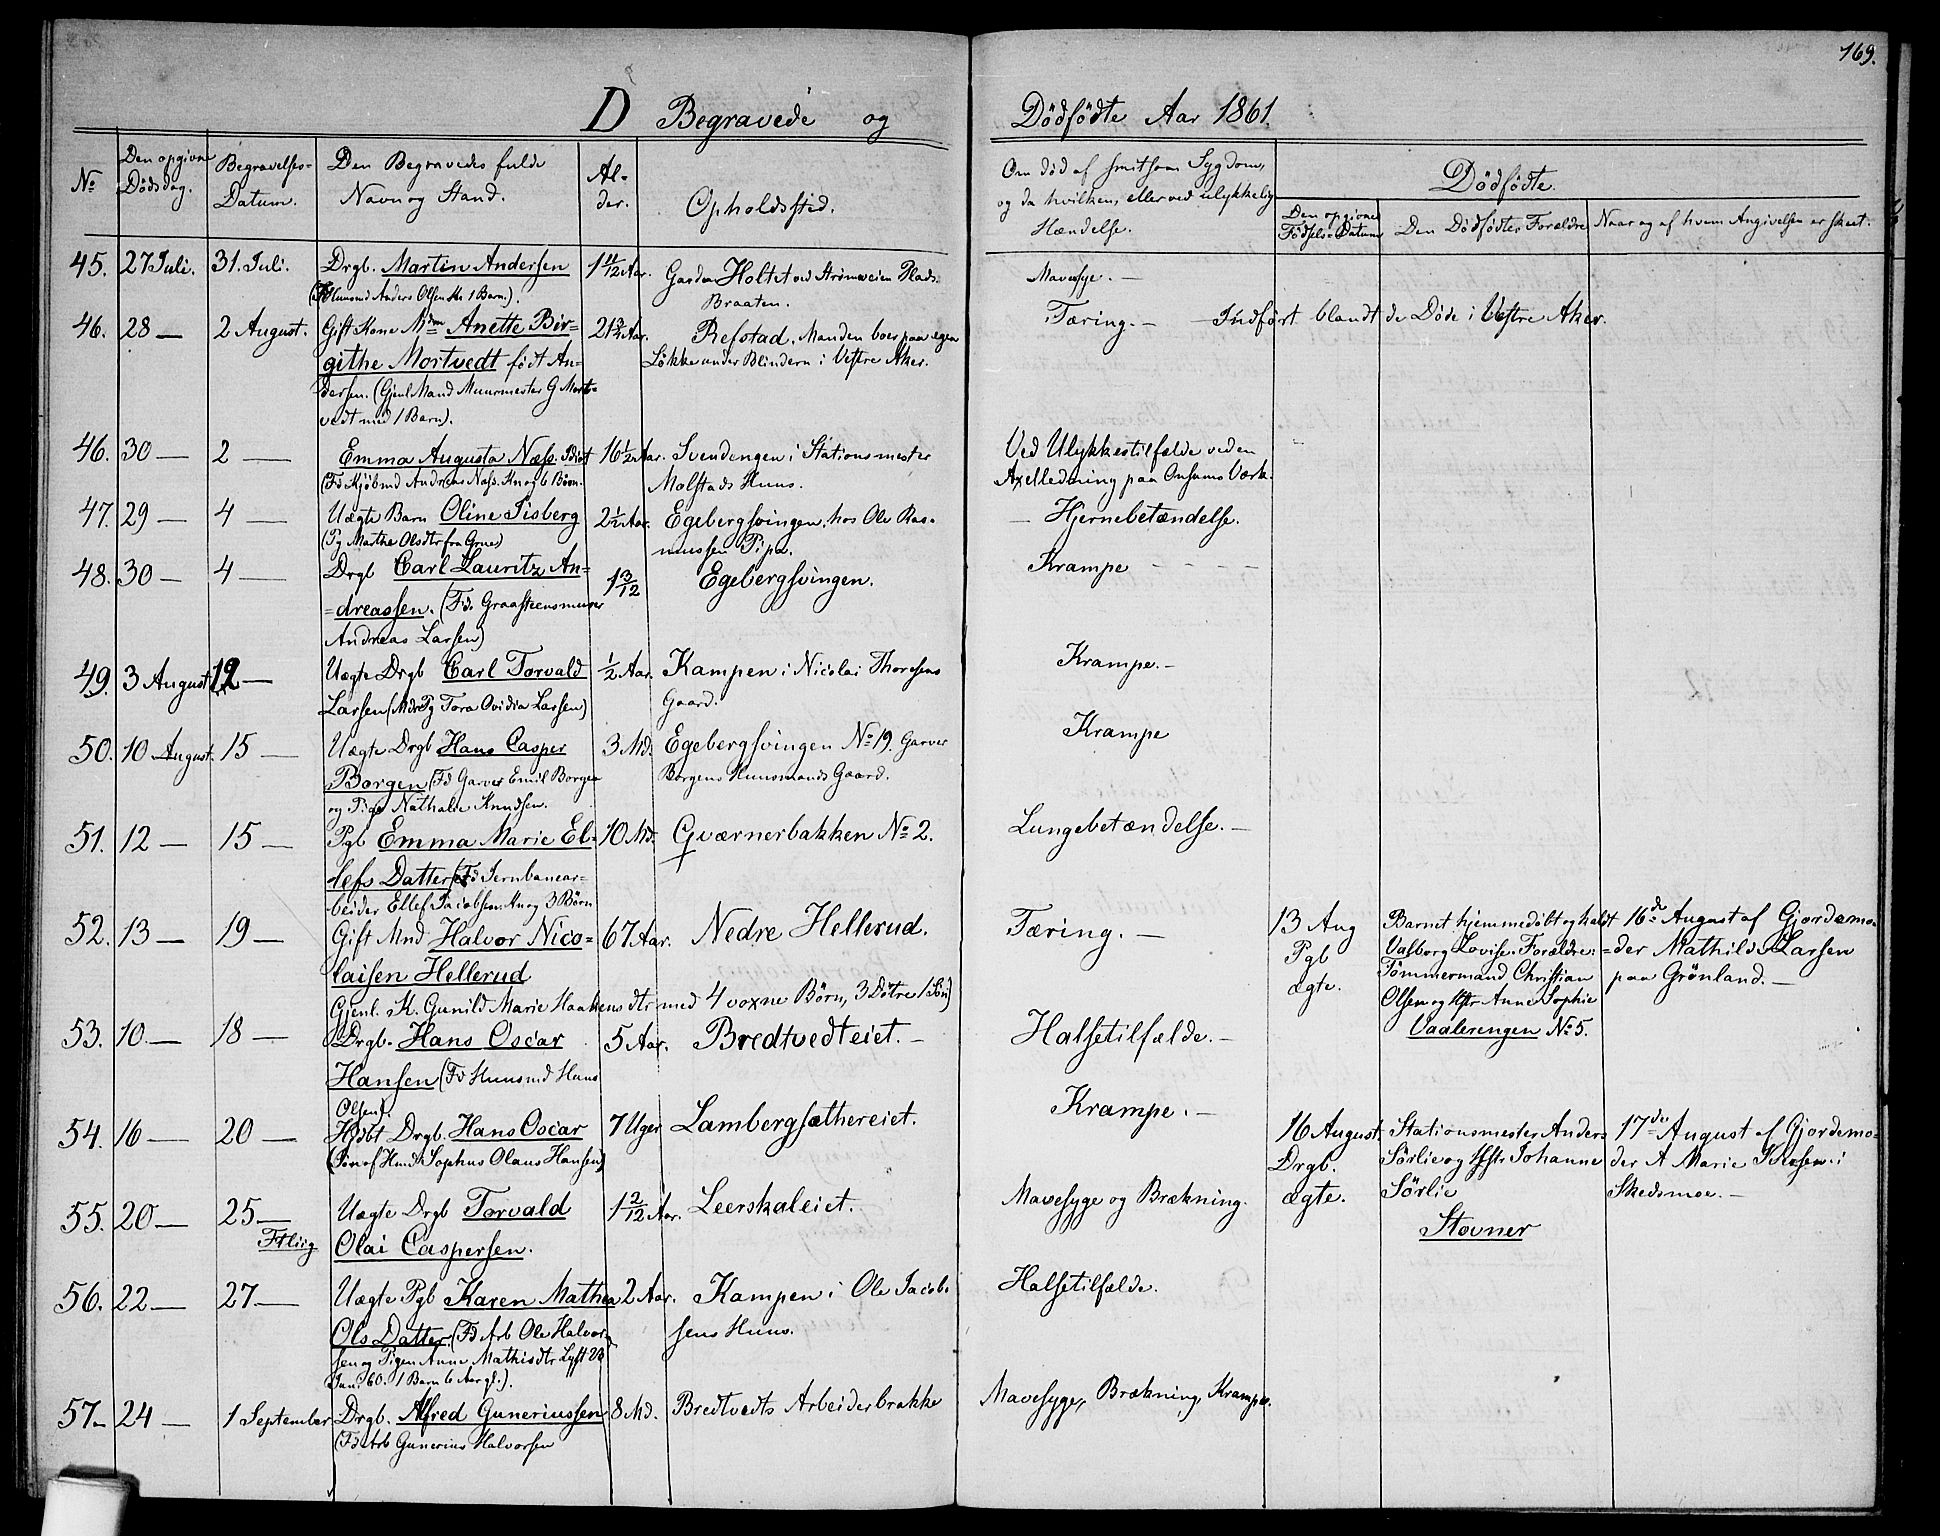 169.
D Begravede og Dödfödte Aar 1861
No
Den opgivne Dödsdag.
Begravelses-Datum.
Den Begravedes fulde Navn og Stand.
Alder.
Opholdssted.
Om död af smitsom Sygdom, og da hvilken, eller ved ulykkelig Hændelse.
Dödfödte.
Den opgivne Födsels-Datum
Den Dödfödtes Forældre
Naar og af hvem Angivelsen er skeet.
45. 27 Juli. 31. Juli. Drgb. Martin Andersen 1 4/12 Aar. Gaarden Holtet ved Strömsveien Plads: Mavesyge. —
(Fd Huusmd Anders Olsen Kr 1 Barn). Braaten.
46. 28 — 2 August. Gift Kone Mdm Anette Bir- Aar. Refstad. Manden boer paa egen Tæring. — Indfört blandt de Døde i Vestre Aker.
githe Mortvedt födt An- Lökke under Blindern i Vestre Aker.
dersen. (Gjenl Mand Muurmester G Mort-
vedt med 1 Barn).
46. 30 — 2 — Emma Augusta Næss. Idiot 16 1/2 Aar. Svendengen i Stationsmester Ved Ulykkestilfælde ved en
(Fd Kjöbmd Andreas Næss. Kn og 6 Börn. Molstads Huus. Axelledning paa Onsums Værk.
47. 29 — 4 — Uægte Barn Oline Sisberg 2 1/2 Aar. Egebergsvingen, hos Ole Ras- — Hjernebetændelse.
(Pg Marthe Olsdtr fra Grue) mussen Pipa.
48. 30 — 4 — Drgb Carl Lauritz An- 1 3/12 Egebergsvingen. Krampe
=dreassen. (Fd. Graasteensmurer
Andreas Larsen)
49. 3 August 12 — Uægte Drgb Carl Torvald 1/2 Aar. Kampen i Nicolai Thoresens Krampe. —
Larsen (Mdr Pg Tora Ovidia Larsen) Gaard.
50. 10 August. 15 — Uægte Drgb Hans Casper 3 Md. Egebergsvingen No 19. Garver Krampe
Borgen (Fd Garver Emil Borgen Borgens Huusmands Gaard.
og Pige Nathalie Knudsen.
51. 12 — 15 — Pgb Emma Marie El- 10 Md. Qværnerbakken No 2. Lungebetændelse. —
lefs Datter (Fd Jernbanear-
beider Ellef Jacobsen. Kn og 3 Börn
52. 13 — 19 — Gift Mnd Halvor Nico- 67 Aar. Nedre Hellerud. Tæring. — 13 Aug Barnet hjemmedöbt og kaldt 16de August af Gjordemo-
laisen Hellerud Pgb Valborg Lovise. Forældre: =der Mathilde Larsen
ægte. Tömmermand Christian paa Grönland. —
Gjenl. K. Gunild Marie Haakensdtr med 4 voxne Börn, 3 Dötre 1 Sön) Olsen og Hstr Anne Sophie
53. 10 — 18 — Drgb. Hans Oscar 5 Aar. Bredtvedteiet. — Halsetilfælde. — Vaalerengen No 5.
Hansen (Fd Huusmd Hans
Olsen).
54. 16 — 20 — Hjdbt Drgb. Hans Oscar 7 Uger Lambergsætherciet. Krampe. — 16 August. Stationsmester Anders 17de August af Gjordemo-
(Sön af Hmd Sophus Olaus Hansen) Drgb. Sörlie og Hstr Johanne der A Marie i
ægte. Sörlie Skedsmoe. —
Stovner
55. 20 — 25 — Uægte Drgb Torvald 1 2/12 Aar. Leerskaleiet. Mavesyge og Brækning.
Olai Caspersen.
56. 22 — 27 — Uægte Pgb Karen Mathea 2 Aar. Kampen i Ole Jacob- Halsetilfælde.
Ols Datter. (Fd Arb Ole Halvor- sens Huus.
sen og Pigen Anne Mathisdtr Lyst 23
Jan. 60. 1 Barn 6 Aar gl.).
57 — 24 — 1 September Drgb. Alfred Guneriussen 8 Md. Bredtvedts Arbeiderbrakke Mavesyge, Brækning, Krampe.
(Fd Arb Gunerius Halvorsen